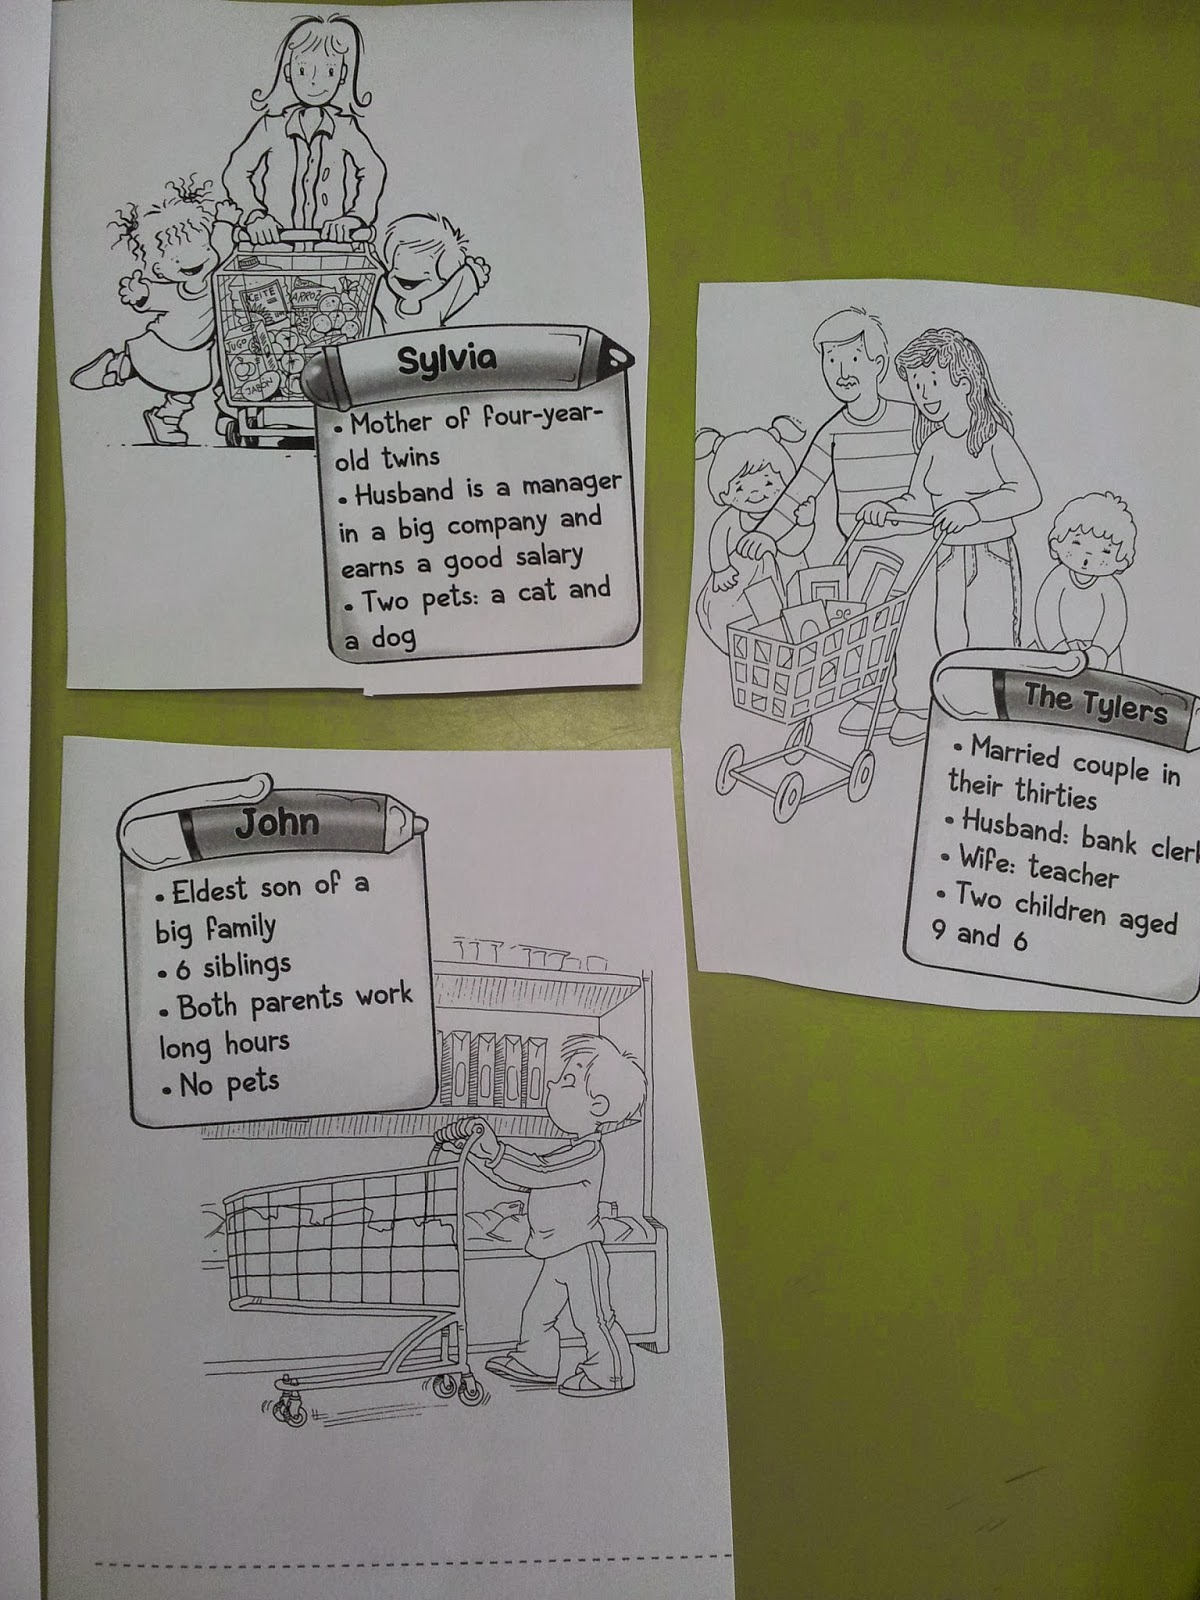 ACEITE
ARROZ
JUGO
JABÓN
Sylvia
• Mother of four-year-
old twins
• Husband is a manager
in a big company and
earns a good salary
• Two pets: a cat and
a dog
The Tylers
• Married couple in
their thirties
• Husband: bank clerk
• Wife: teacher
• Two children aged
9 and 6
John
• Eldest son of a
big family
• 6 siblings
• Both parents work
long hours
• No pets